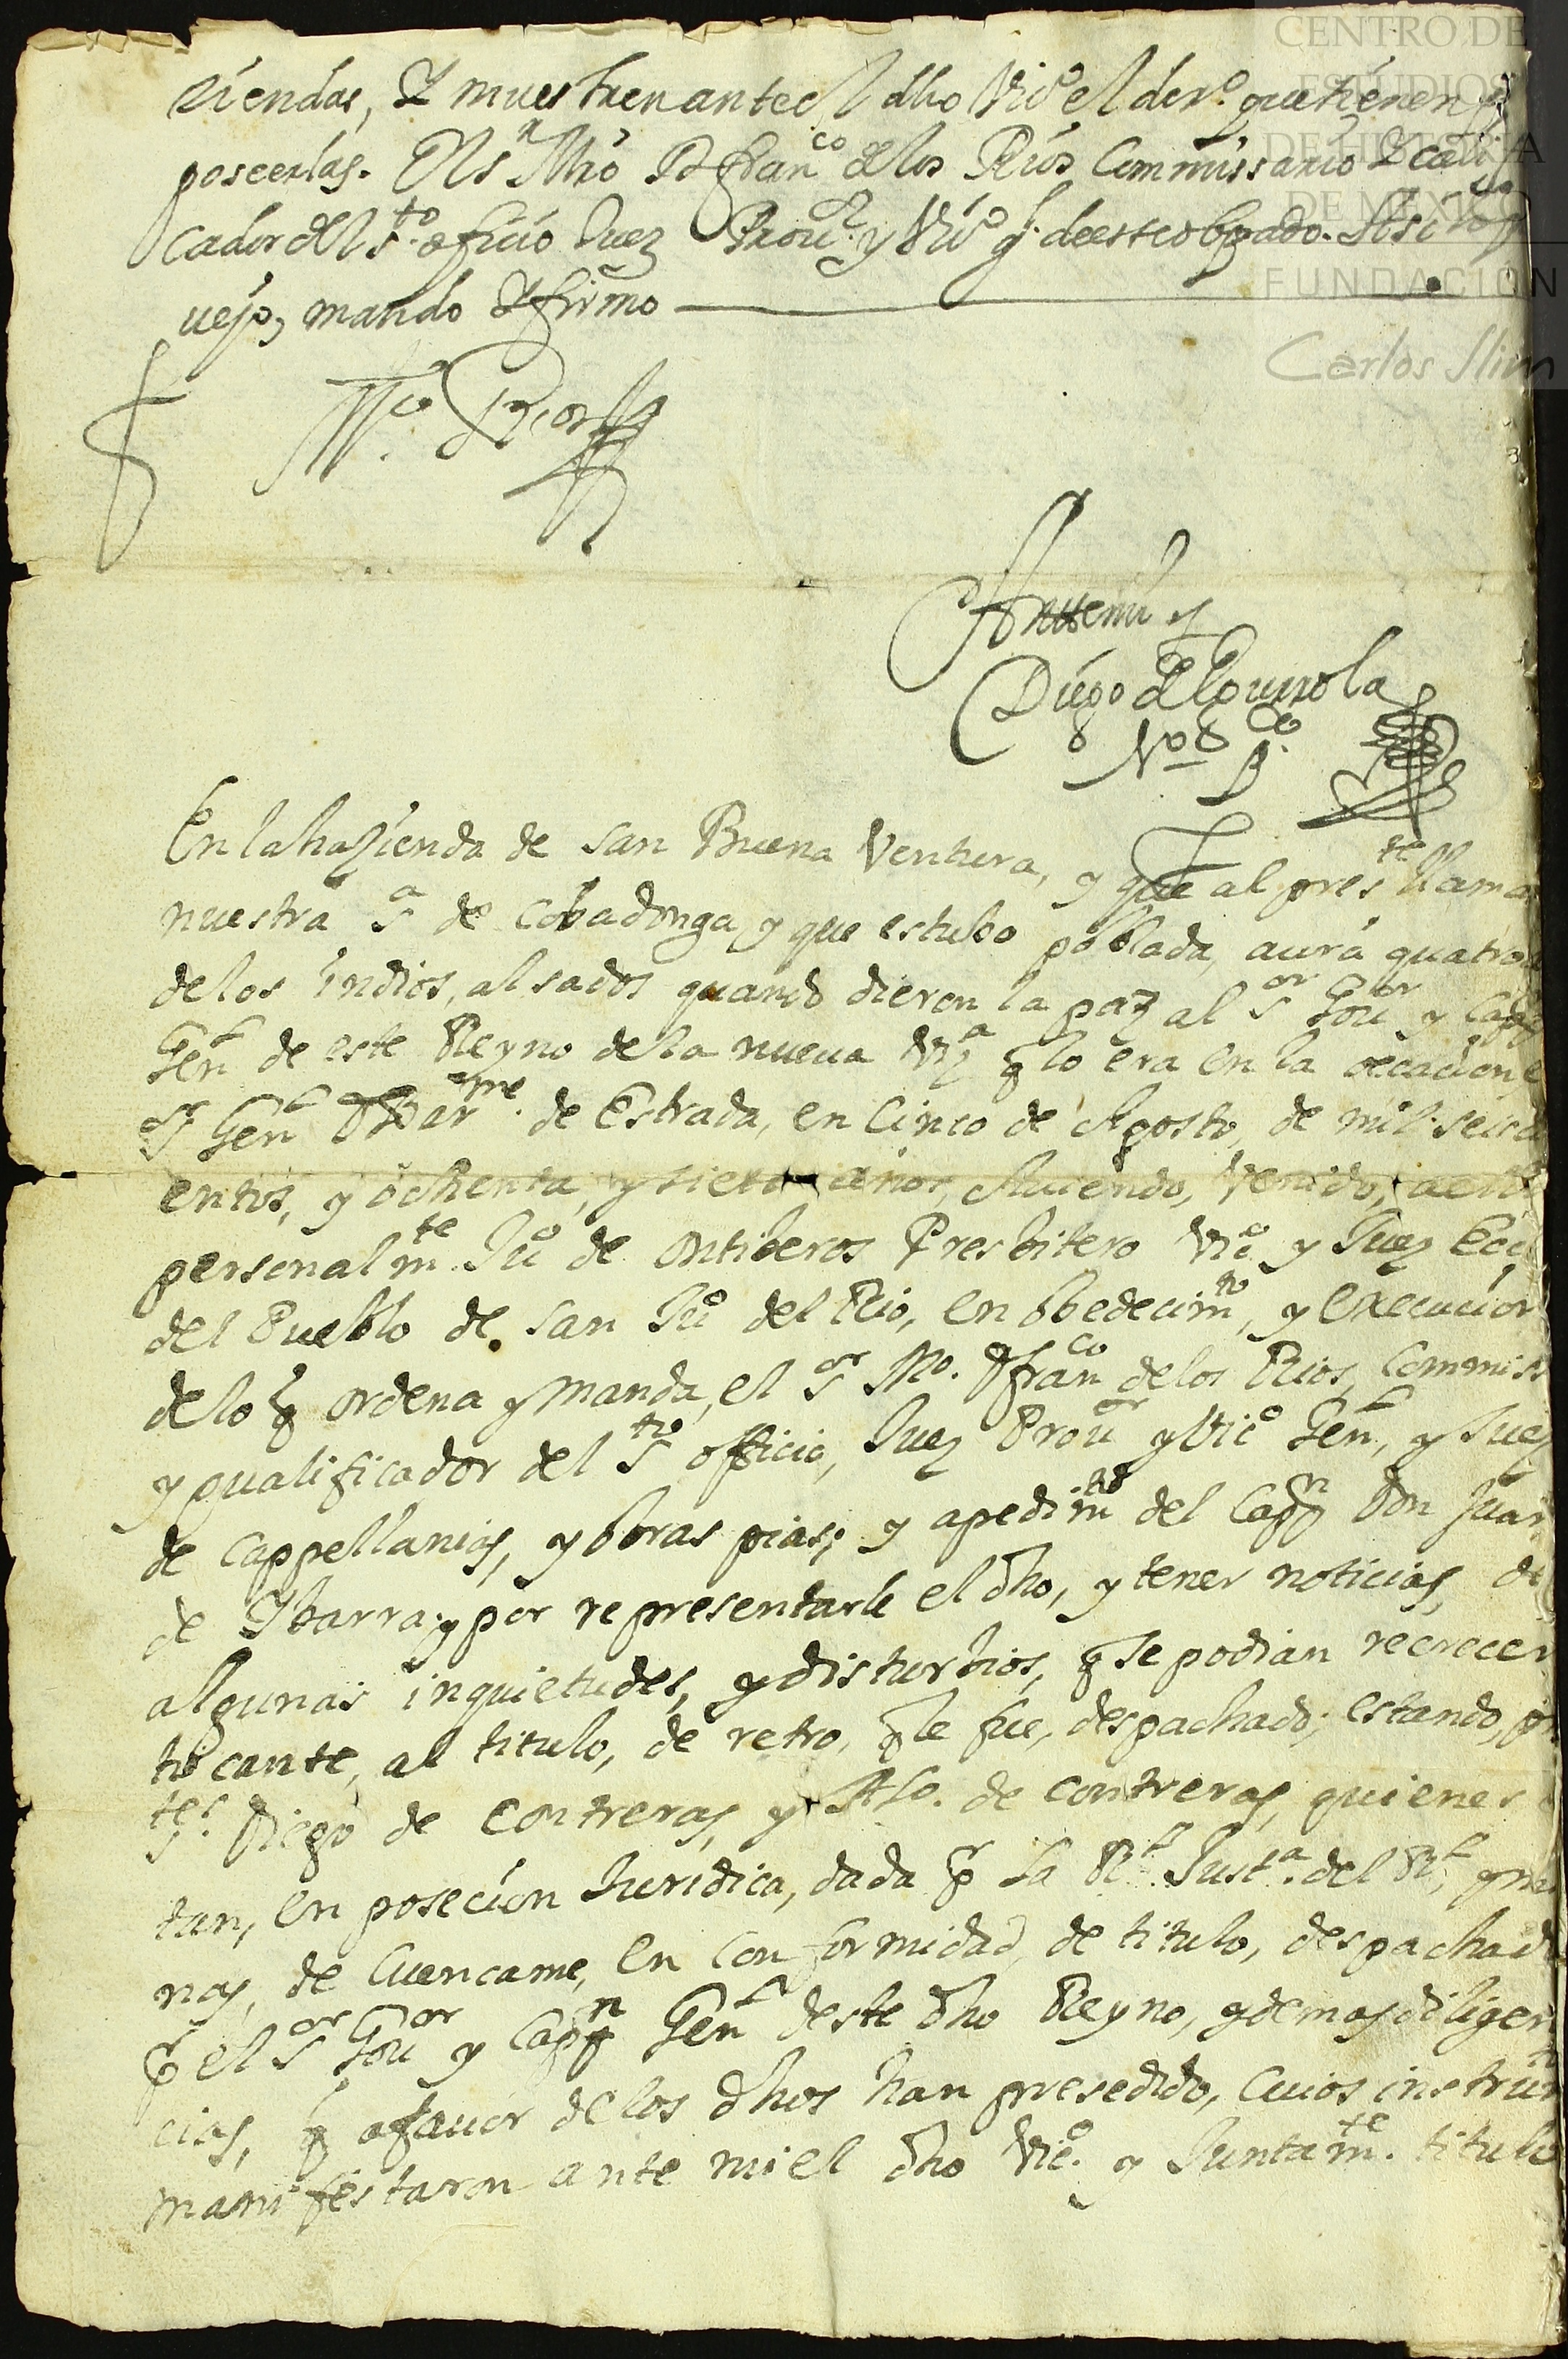 CENTRO DE
ESTUDIOS
DE HISTORIA
DE MEXICO
FUNDACIÓN
Carlos Slim
ziendas, Y muestren ante el dho Vicº el derº que tienen pª
poseerlas. El sr Mrô D franco de los Rios Commissario Y cali
cador del sto oficio Juez Prouor y Vicº gl de este obpado. Assi lo
ueyo, mando Y firmo
Mº Rios
Ante mi
Diego de
Noº
En la hazienda de san Buena Ventura, y que al preste llama
nuestra sa de Cobadonga, y que estubo poblada, aura quatro
de los indios, alsados quando dieron la paz al sor Gouor y Capn
Genl de este Reyno de la nueua Vizª q lo era en la occacion e
sr Genl D Barme. de Estrada, en Cinco de Agosto, de mil seisci
entos, y ochenta, y siete años, Auiendo, Venido, a ella
personalmte Juº de ontiberos Presbitero Vicº y Juez Ecco
del Pueblo de san Juº del Rio, en obedecimto, y execucion
de lo q ordena y manda, el sor Mº. D franco de los Rios, Commiss
y qualificador del sto officio, Juez Prouor y Vicº Genl, y Juez
de Cappellanias, y obras pias; y a pedimto del Capn Don Juan
de Ybarra; y por representarle el dho, y tener noticias, de
algunas inquietudes, y disturbios, q se podian recrecer
tocante, al titulo, de retro, q le fue, despachado; estando, pn
tes. Diego de Contreras, y Alº. de Contreras, quienes
tan, en posecion Juridica, dada p la Rl Justª. del Rl, y mi
nas, de Cuencame, en conformidad, de titulo, despachado
p el sor Gouor y Capn Genl deste dho Reyno, y demas diligen
cias, q a fauor de los dhos han presedido, Cuios instrumtos
manifestaron ante mi el dho Vicº. y Juntamte. titulo